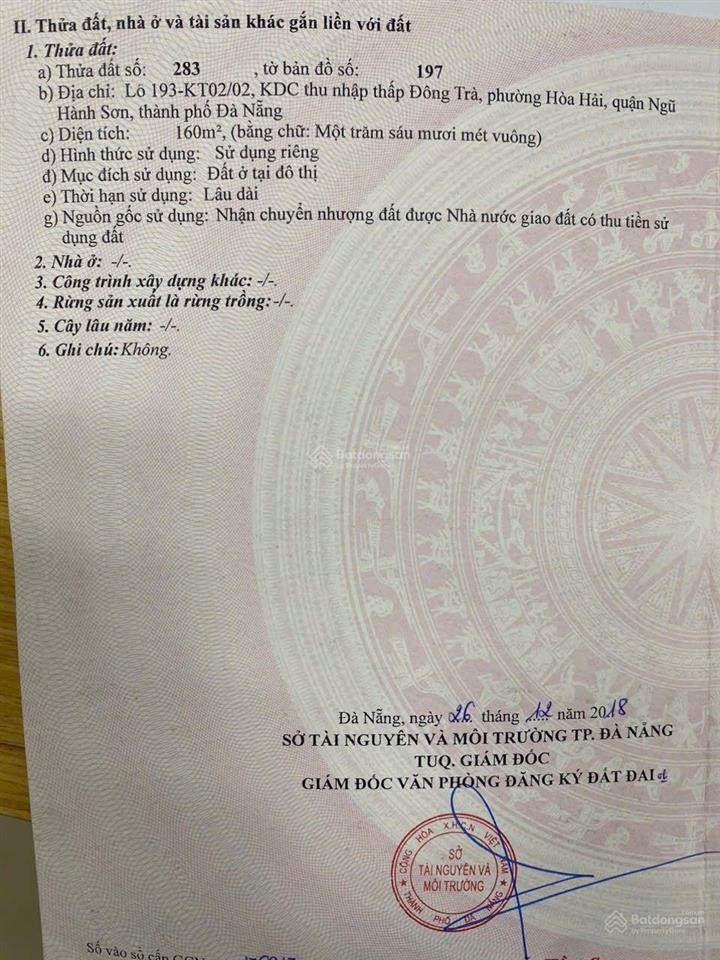 II. Thửa đất, nhà ở và tài sản khác gắn liền với đất
1. Thửa đất:
a) Thửa đất số: 283 , tờ bản đồ số: 197
b) Địa chỉ: Lô 193-KT02/02, KDC thu nhập thấp Đông Trà, phường Hòa Hải, quận Ngũ
Hành Sơn, thành phố Đà Nẵng
c) Diện tích: 160m², (bằng chữ: Một trăm sáu mươi mét vuông)
d) Hình thức sử dụng: Sử dụng riêng
đ) Mục đích sử dụng: Đất ở tại đô thị
e) Thời hạn sử dụng: Lâu dài
g) Nguồn gốc sử dụng: Nhận chuyển nhượng đất được Nhà nước giao đất có thu tiền sử
dụng đất
2. Nhà ở: -/-.
3. Công trình xây dựng khác: -/-.
4. Rừng sản xuất là rừng trồng: -/-.
5. Cây lâu năm: -/-.
6. Ghi chú: Không.
Batdongsan
by PropertyGuru
Đà Nẵng, ngày 26 tháng 12 năm 2018
SỞ TÀI NGUYÊN VÀ MÔI TRƯỜNG TP. ĐÀ NẴNG
TUQ. GIÁM ĐỐC
GIÁM ĐỐC VĂN PHÒNG ĐĂNG KÝ ĐẤT ĐAI
CỘNG HÒA X.H.C.N VIỆT NAM
SỞ
TÀI NGUYÊN VÀ
MÔI TRƯỜNG
THÀNH PHỐ ĐÀ NẴNG
Batdongsan
by PropertyGuru
Số vào sổ cấp